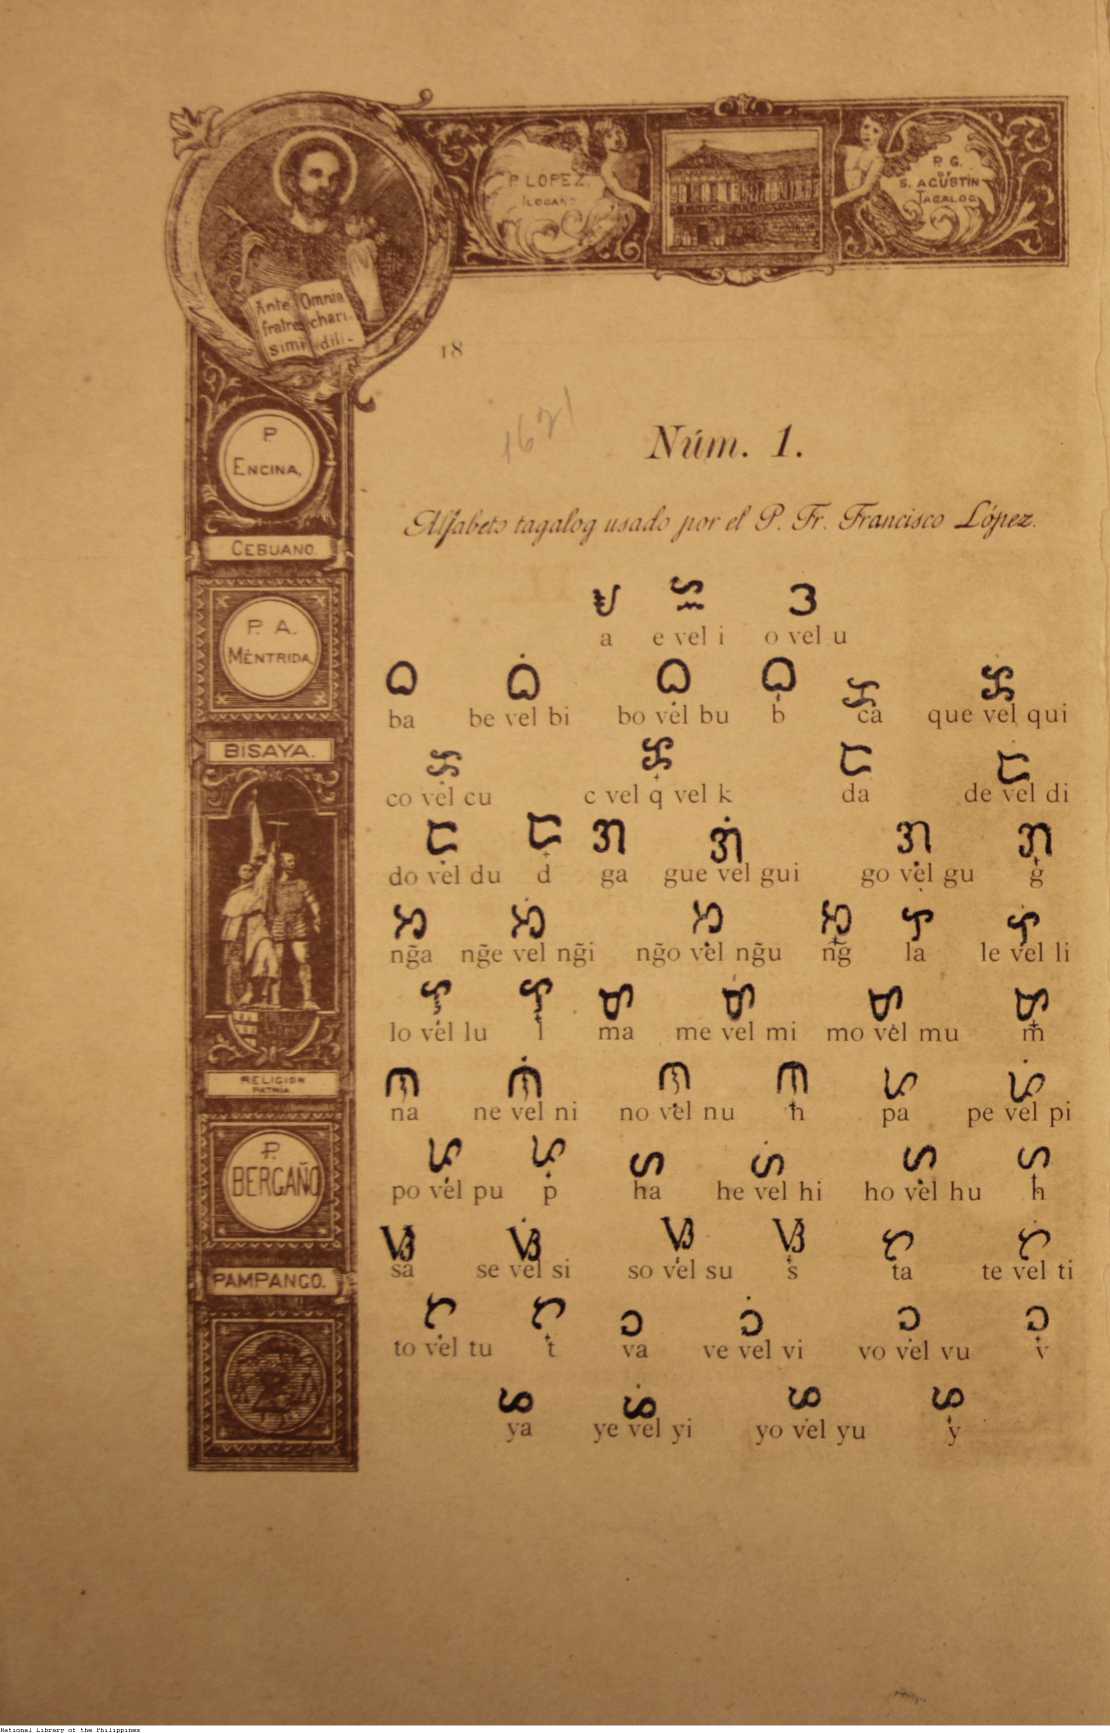 P. LOPEZ.
ILOCANO
P. G.
DE
S. AGUSTIN
TAGALOG
Ante Omnia
fratres chari-
simi dili-
18
1621
P.
ENCINA,
CEBUANO.
P. A.
MÉNTRIDA,
BISAYA.
RELIGION
PATRIA
P.
BERGAÑO
PAMPANGO.
Núm. 1.
Alfabeto tagalog usado por el P. Fr. Francisco López.
ᜀ ᜁ ᜂ
a e vel i o vel u
ᜊ ᜊᜒ ᜊᜓ ᜊ᜔ ᜃ ᜃᜒ
ba be vel bi bo vel bu b ca que vel qui
ᜃᜓ ᜃ᜔ ᜇ ᜇᜒ
co vel cu c vel q vel k da de vel di
ᜇᜓ ᜇ᜔ ᜄ ᜄᜒ ᜄᜓ ᜄ᜔
do vel du d ga gue vel gui go vel gu g
ᜅ ᜅᜒ ᜅᜓ ᜅ᜔ ᜎ ᜎᜒ
ng̃a ng̃e vel ng̃i ng̃o vel ng̃u ng̃ la le vel li
ᜎᜓ ᜎ᜔ ᜋ ᜋᜒ ᜋᜓ ᜋ᜔
lo vel lu l ma me vel mi mo vel mu m
ᜈ ᜈᜒ ᜈᜓ ᜈ᜔ ᜉ ᜉᜒ
na ne vel ni no vel nu n pa pe vel pi
ᜉᜓ ᜉ᜔ ᜑ ᜑᜒ ᜑᜓ ᜑ᜔
po vel pu p ha he vel hi ho vel hu h
ᜐ ᜐᜒ ᜐᜓ ᜐ᜔ ᜆ ᜆᜒ
sa se vel si so vel su s ta te vel ti
ᜆᜓ ᜆ᜔ ᜏ ᜏᜒ ᜏᜓ ᜏ᜔
to vel tu t va ve vel vi vo vel vu v
ᜌ ᜌᜒ ᜌᜓ ᜌ᜔
ya ye vel yi yo vel yu y
National Library of the Philippines